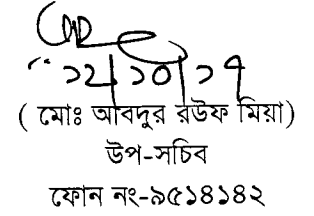 ১২/১০/১৭
( মোঃ আবদুর রউফ মিয়া)
উপ-সচিব
ফোন নং-৯৫১৪১৪২